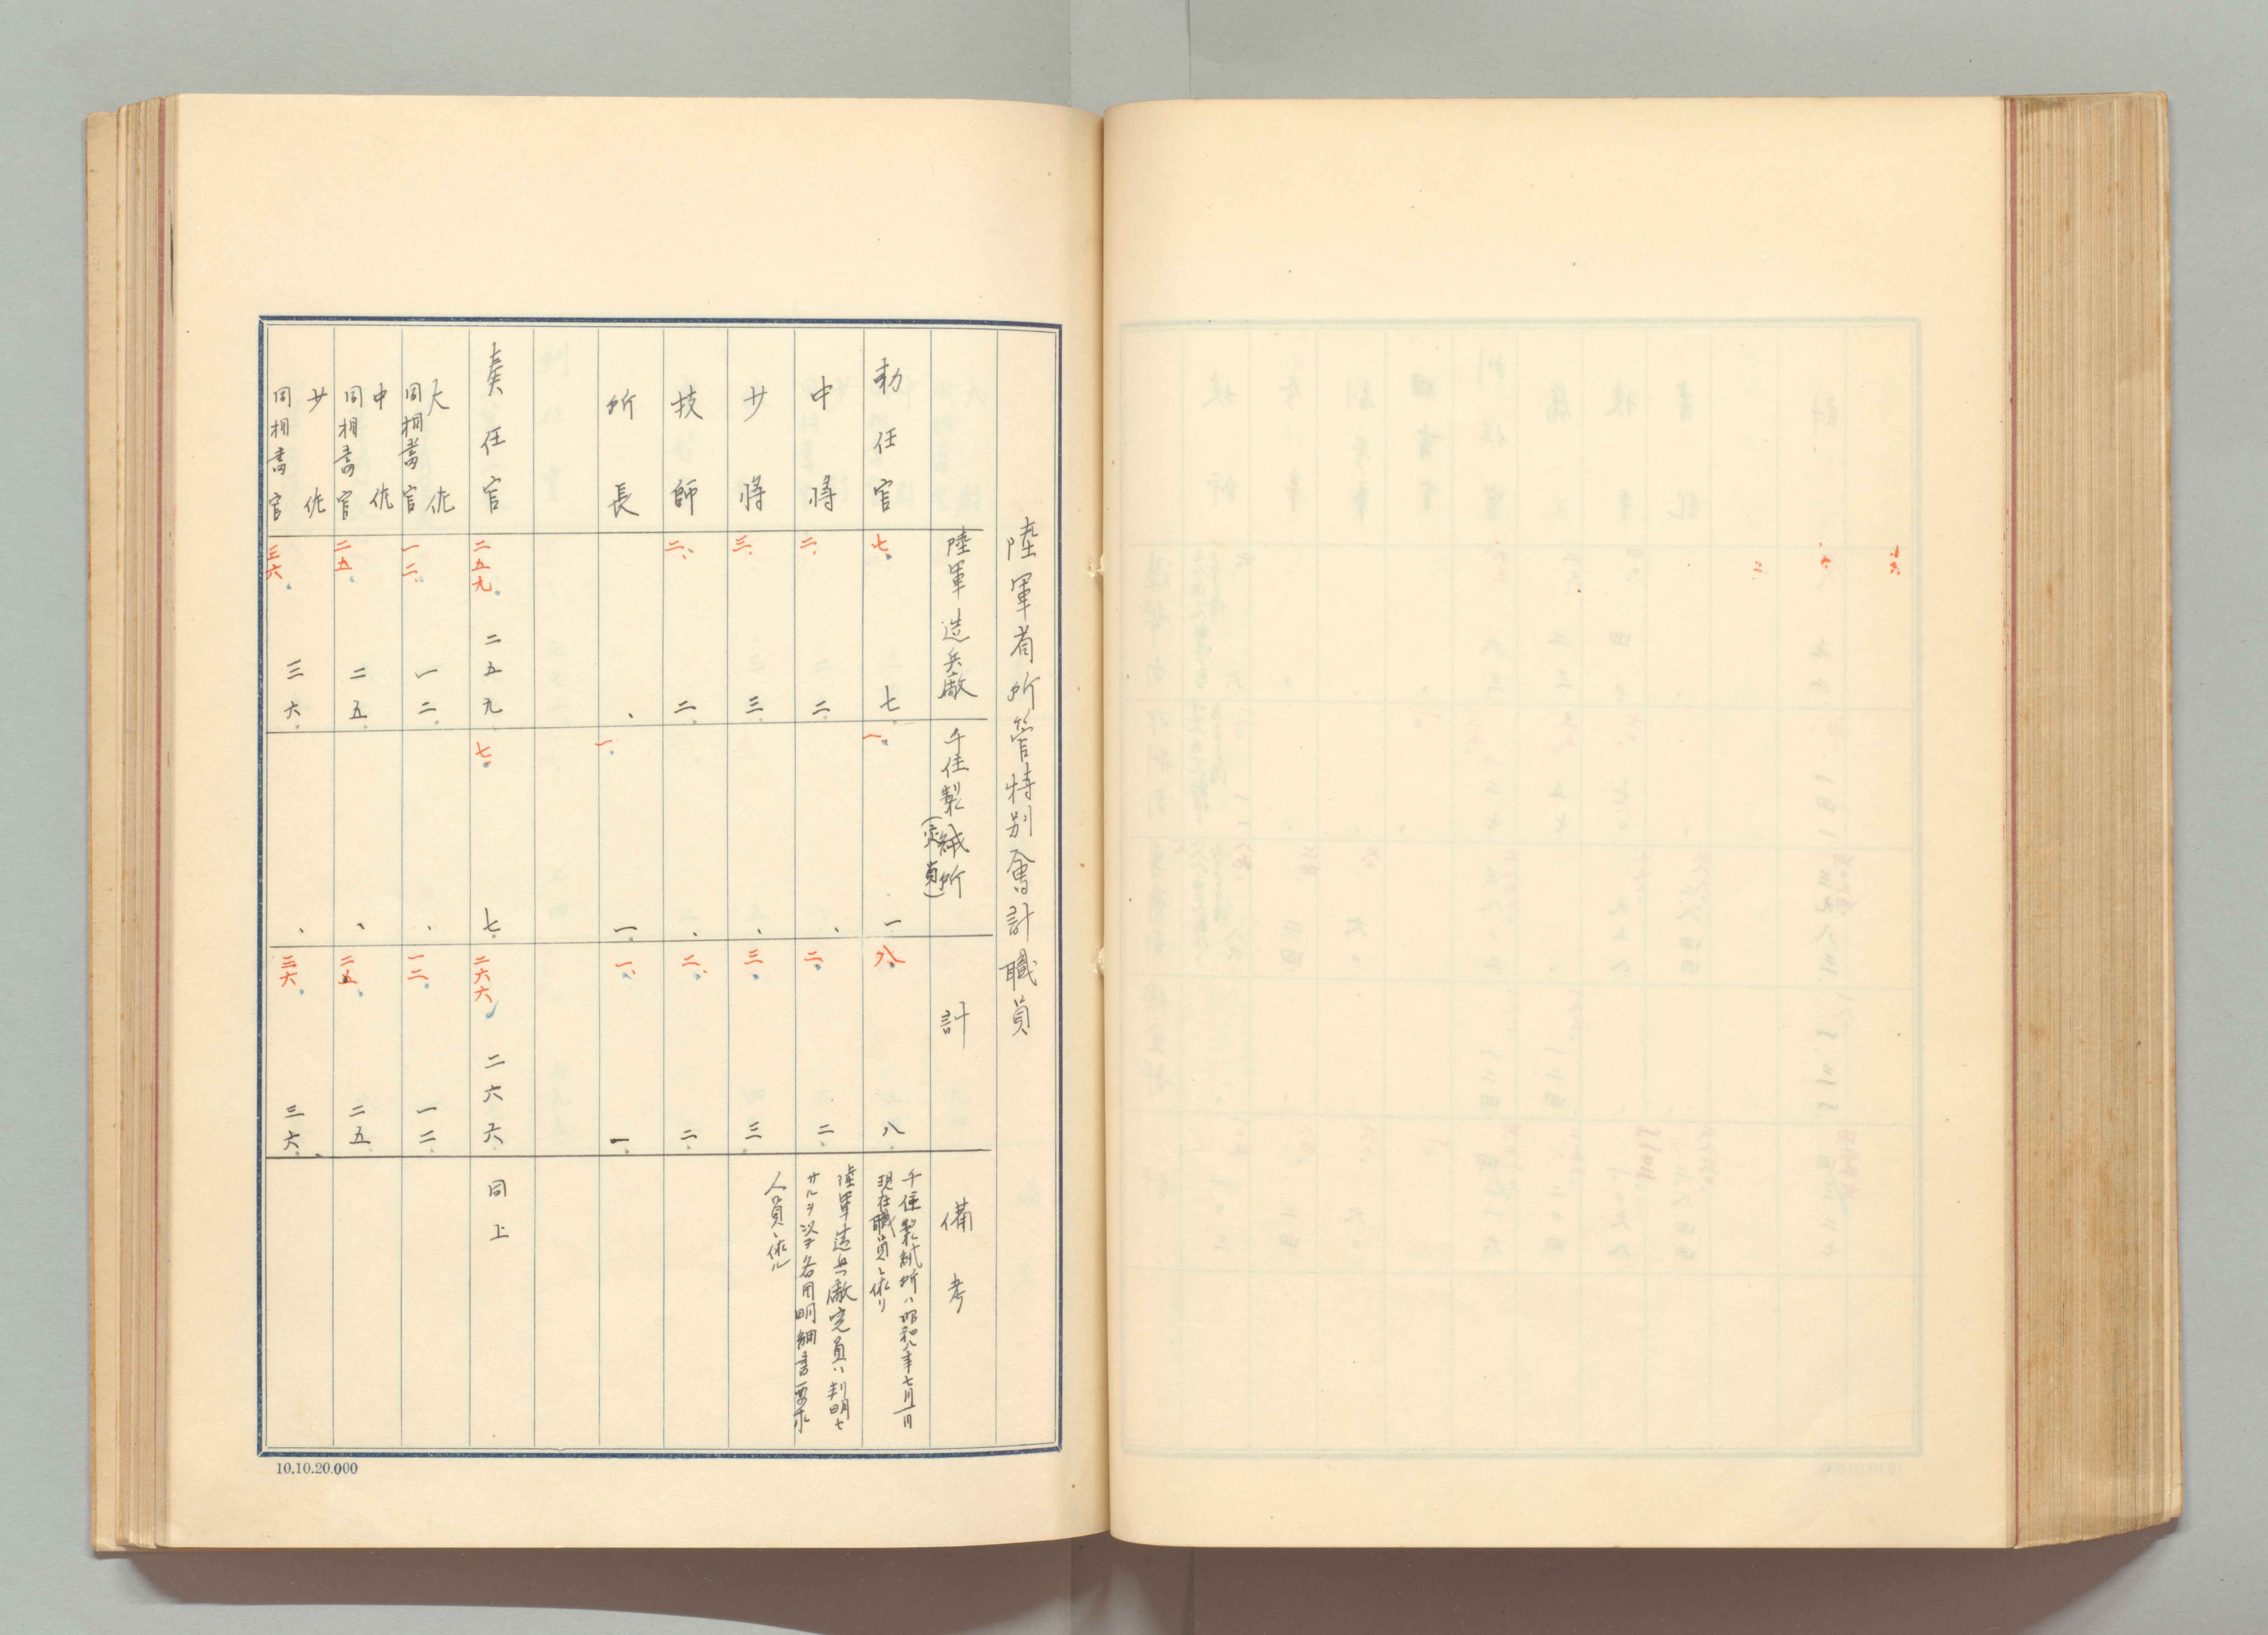 陸軍省所管特別會計職員
陸軍造兵廠
千住製絨所
(定員)
計
備考
勅任官
七
七
一
一
八
八
千住製絨所ハ昭和八年七月一日
現在職員ニ依リ
中將
二
二
、
二
二
陸軍造兵廠定員ハ判明セ
サルヲ以テ各目明細書要求
人員ニ依ル
少將
三
三
、
三
三
技師
二
二
、
二
二
所長
、
一
一
一
一
奏任官
二五九
二五九
七
七
二六六
二六六
同上
大佐
同相當官
一二
一二
、
一二
一二
中佐
同相當官
二五
二五
、
二五
二五
少佐
同相當官
三六
三六
、
三六
三六
10.10.20.000